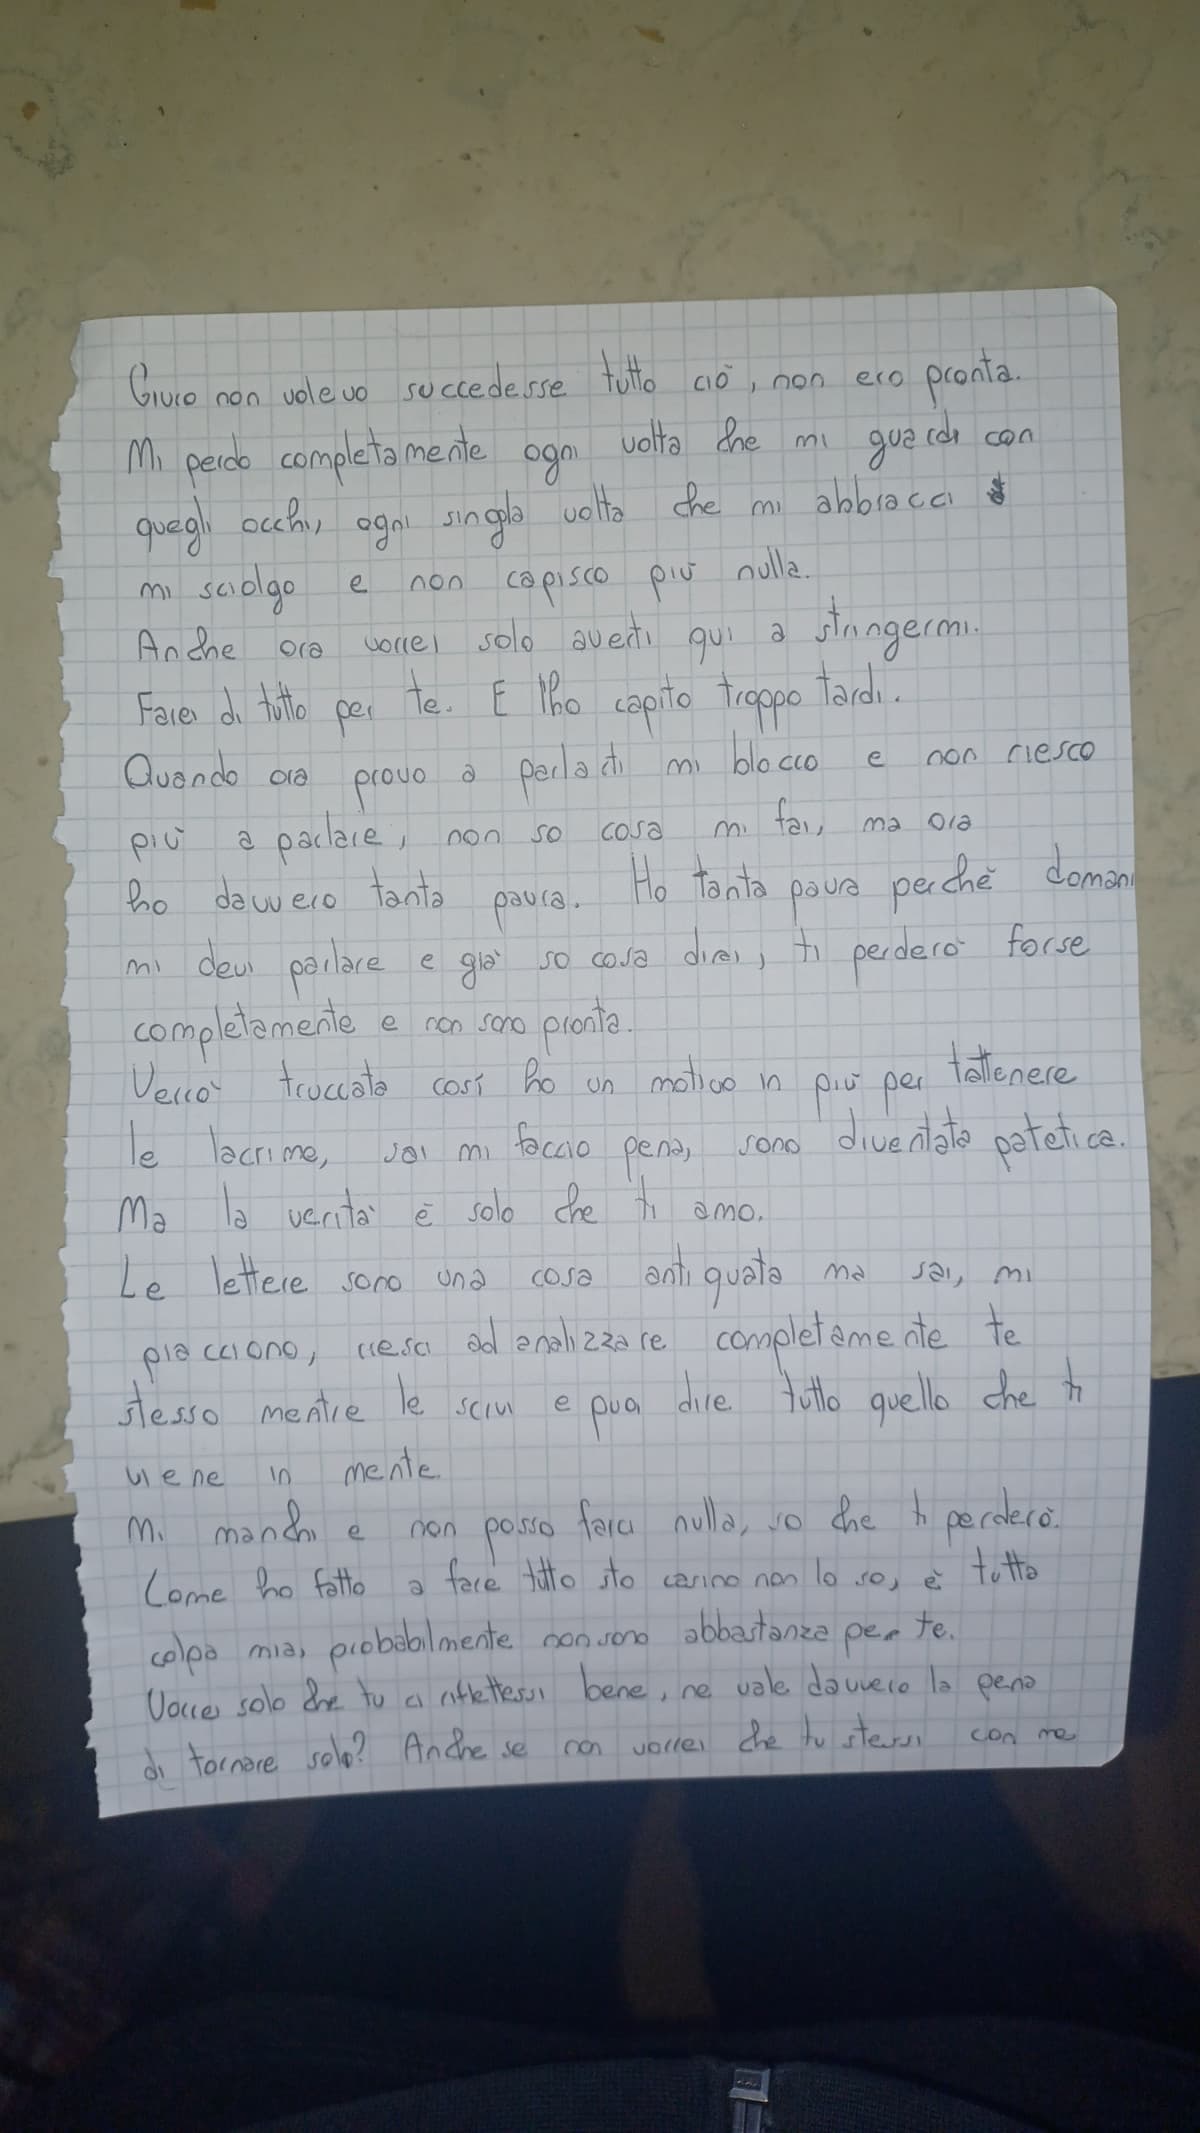 Giuro non volevo succedesse tutto ciò, non ero pronta.
Mi perdo completamente ogni volta che mi guardi con
quegli occhi, ogni singola volta che mi abbracci
mi sciolgo e non capisco più nulla.
Anche ora vorrei solo averti qui a stringermi.
Farei di tutto per te. E l'ho capito troppo tardi.
Quando ora provo a parlarti mi blocco e non riesco
più a parlare, non so cosa mi fai, ma ora
ho davvero tanta paura. Ho tanta paura perché domani
mi devi parlare e già so cosa dirai, ti perderò forse
completamente e non sono pronta.
Verrò truccata così ho un motivo in più per trattenere
le lacrime, sai mi faccio pena, sono diventata patetica.
Ma la verità è solo che ti amo.
Le lettere sono una cosa antiquata ma sai, mi
piacciono, riesci ad analizzare completamente te
stesso mentre le scrivi e puoi dire tutto quello che ti
viene in mente.
Mi manchi e non posso farci nulla, so che ti perderò.
Come ho fatto a fare tutto sto casino non lo so, è tutta
colpa mia, probabilmente non sono abbastanza per te.
Vorrei solo che tu ci riflettessi bene, ne vale davvero la pena
di tornare solo? Anche se non vorrei che tu stessi con me